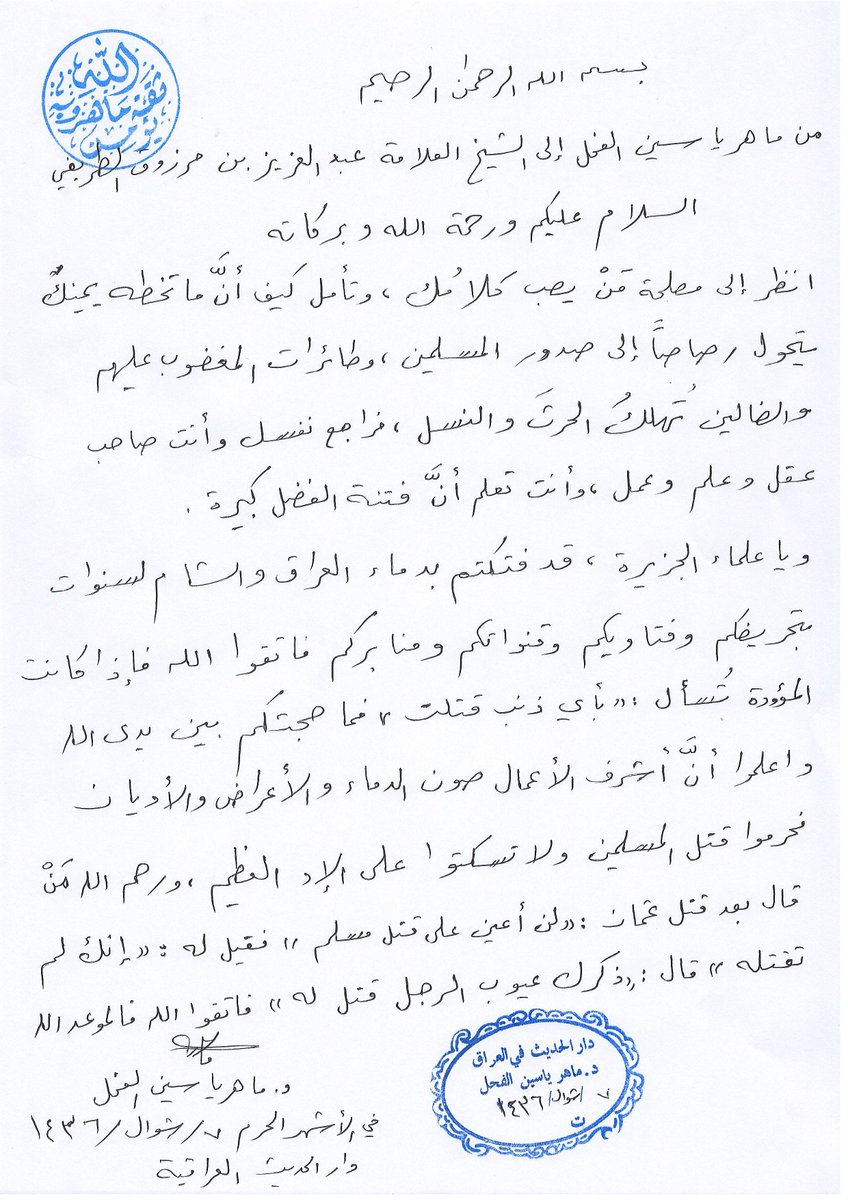 الله
ثقة ما نفزوبه
يؤمن
بسم الله الرحمن الرحيم
من ماهر ياسين الفحل إلى الشيخ العلامة عبد العزيز بن مرزوق الطريفي
السلام عليكم ورحمة الله وبركاته
انظر إلى مصلحة مَنْ يصب كلامُك ، وتأمل كيف أنَّ ما تخطه يمينكَ
يتحول رصاصاً إلى صدور المسلمين ، وطائرات المغضوب عليهم
والضالين تُهلكُ الحرثَ والنسل ، فراجع نفسك وأنت صاحب
عقل وعلم وعمل ، وأنت تعلم أنَّ فتنة الفضل كبيرة .
ويا علماء الجزيرة ، قد فتكتم بدماء العراق والشام لسنوات
بتحريضكم وفتاويكم وقنواتكم ومنابركم فاتقوا الله فإذا كانت
المؤودة تُسأل : «بأي ذنب قتلت» فما حجتكم بين يدي الله
واعلموا أنَّ أشرف الأعمال صون الدماء والأعراض والأديان
فحرموا قتل المسلمين ولا تسكتوا على الإد العظيم ، ورحم الله مَنْ
قال بعد قتل عثمان : «لن أعين على قتل مسلم» فقيل له : «إنك لم
تقتله» قال : «ذكرك عيوب الرجل قتل له» فاتقوا الله فالموعد الله
د. ماهر ياسين الفحل
في الأشهر الحرم ٧/شوال/١٤٣٦
دار الحديث العراقية
دار الحديث في العراق
د. ماهر ياسين الفحل
٧/شوال/١٤٣٦
ت